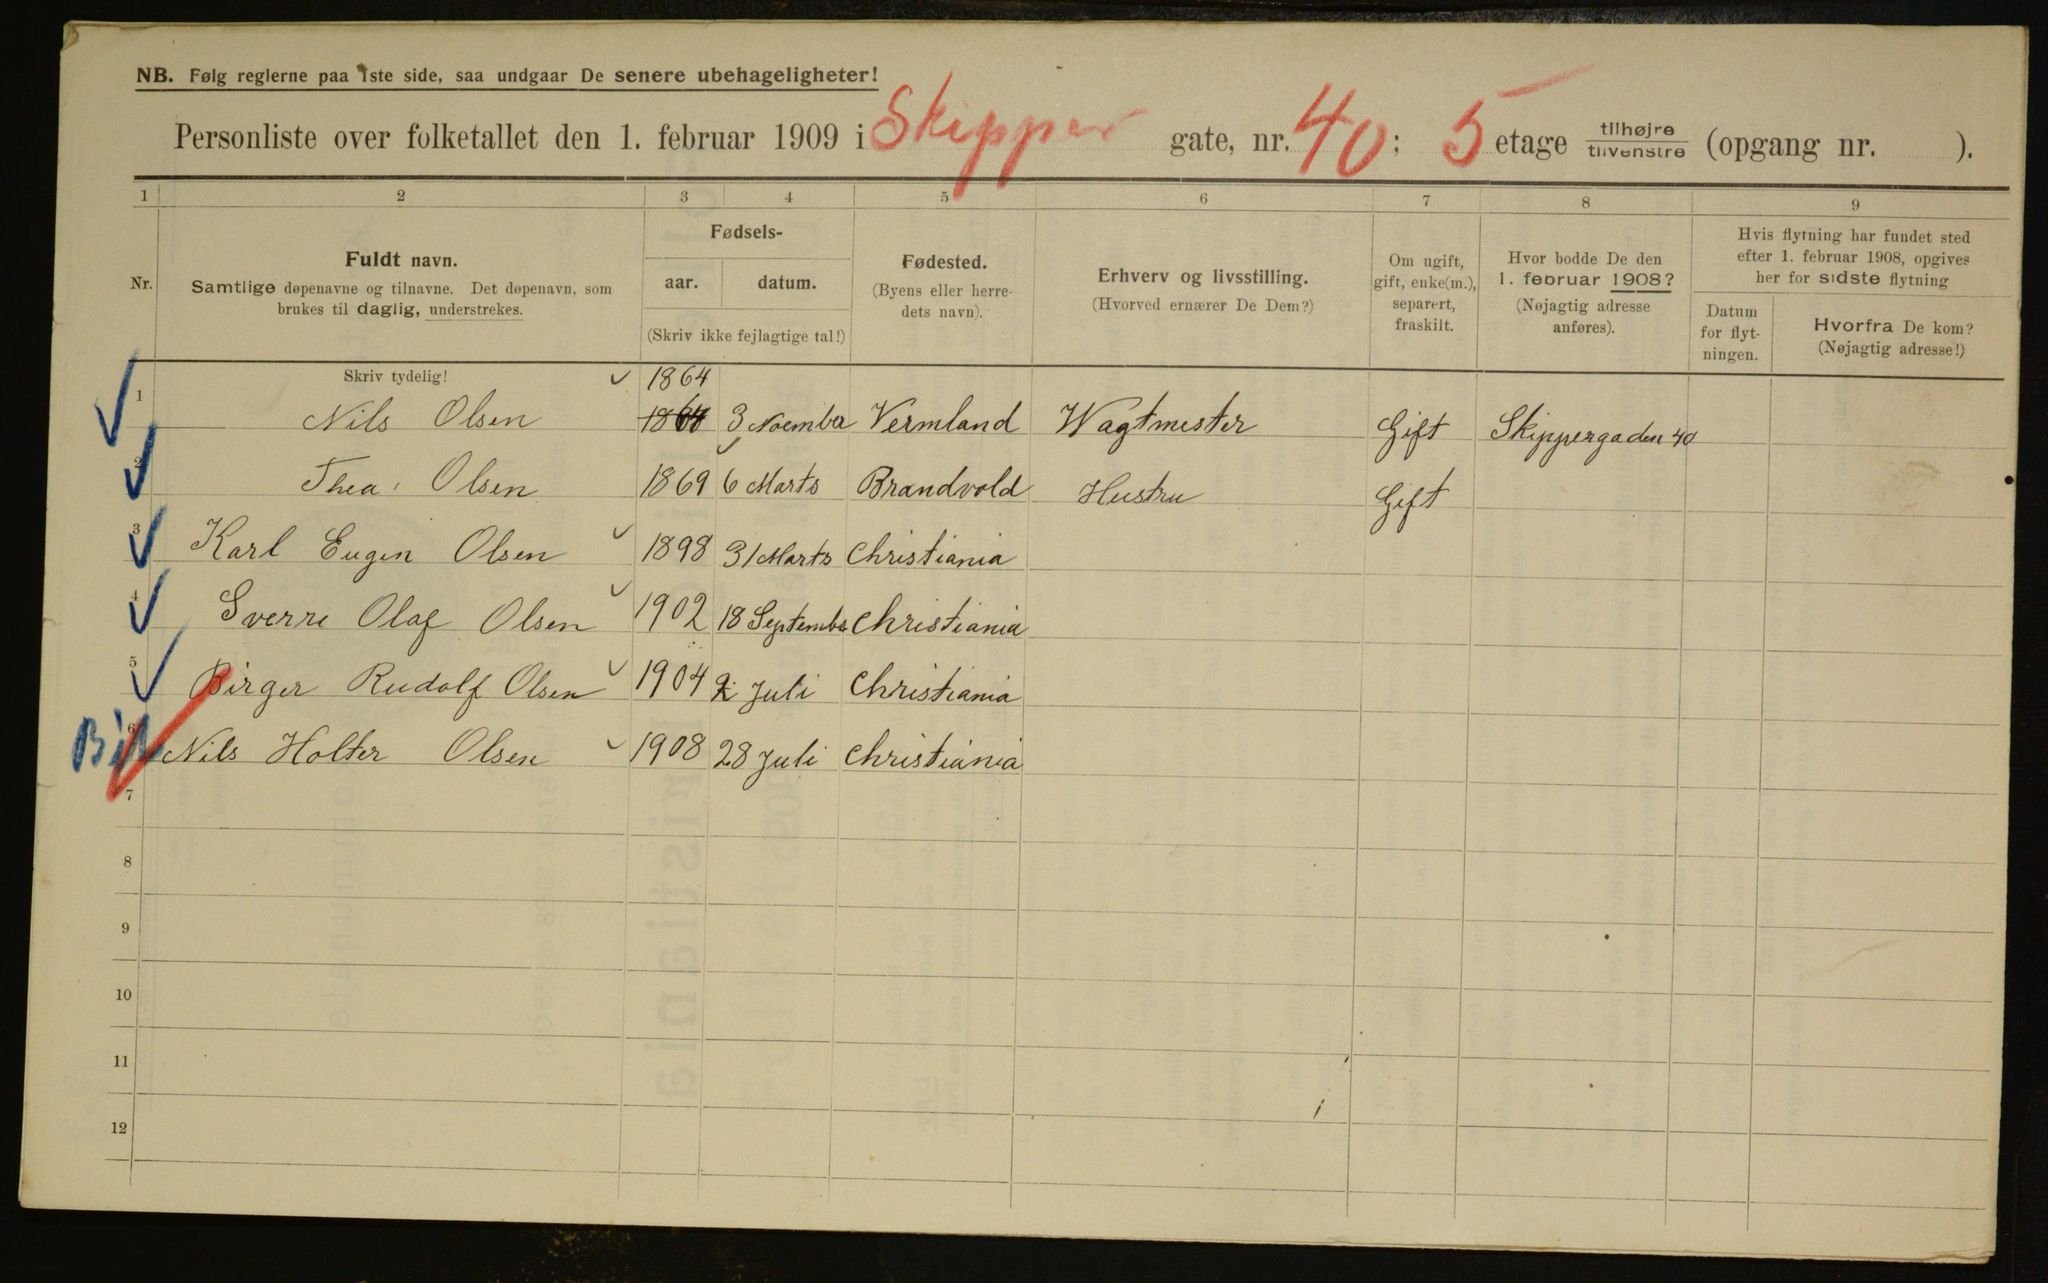 NB. Følg reglerne paa 1ste side, saa undgaar De senere ubehageligheter!
Personliste over folketallet den 1. februar 1909 i Skipper gate, nr. 40; 5 etage tilhøjre/tilvenstre (opgang nr. ).
1 2 3 4 5 6 7 8 9
Nr.
Fuldt navn.
Samtlige døpenavne og tilnavne. Det døpenavn, som
brukes til daglig, understrekes.
Fødsels-
aar. datum.
(Skriv ikke fejlagtige tal!)
Fødested.
(Byens eller herre-
dets navn).
Erhverv og livsstilling.
(Hvorved ernærer De Dem?)
Om ugift,
gift, enke(m.),
separert,
fraskilt.
Hvor bodde De den
1. februar 1908?
(Nøjagtig adresse
anføres).
Hvis flytning har fundet sted
efter 1. februar 1908, opgives
her for sidste flytning
Datum
for flyt-
ningen.
Hvorfra De kom?
(Nøjagtig adresse!)
Skriv tydelig! 1864
1 Nils Olsen 3 Noember Vermland Wagtmester Gift Skippergaden 40
2 Thea Olsen 1869 6 Marts Brandvold Hustru Gift
3 Karl Eugen Olsen 1898 31 Marts Christiania
4 Sverre Olaf Olsen 1902 18 Septembe Christiania
5 Birger Rudolf Olsen 1904 2 Juli Christiania
6 Nils Holter Olsen 1908 28 Juli Christiania
7
8
9
10
11
12